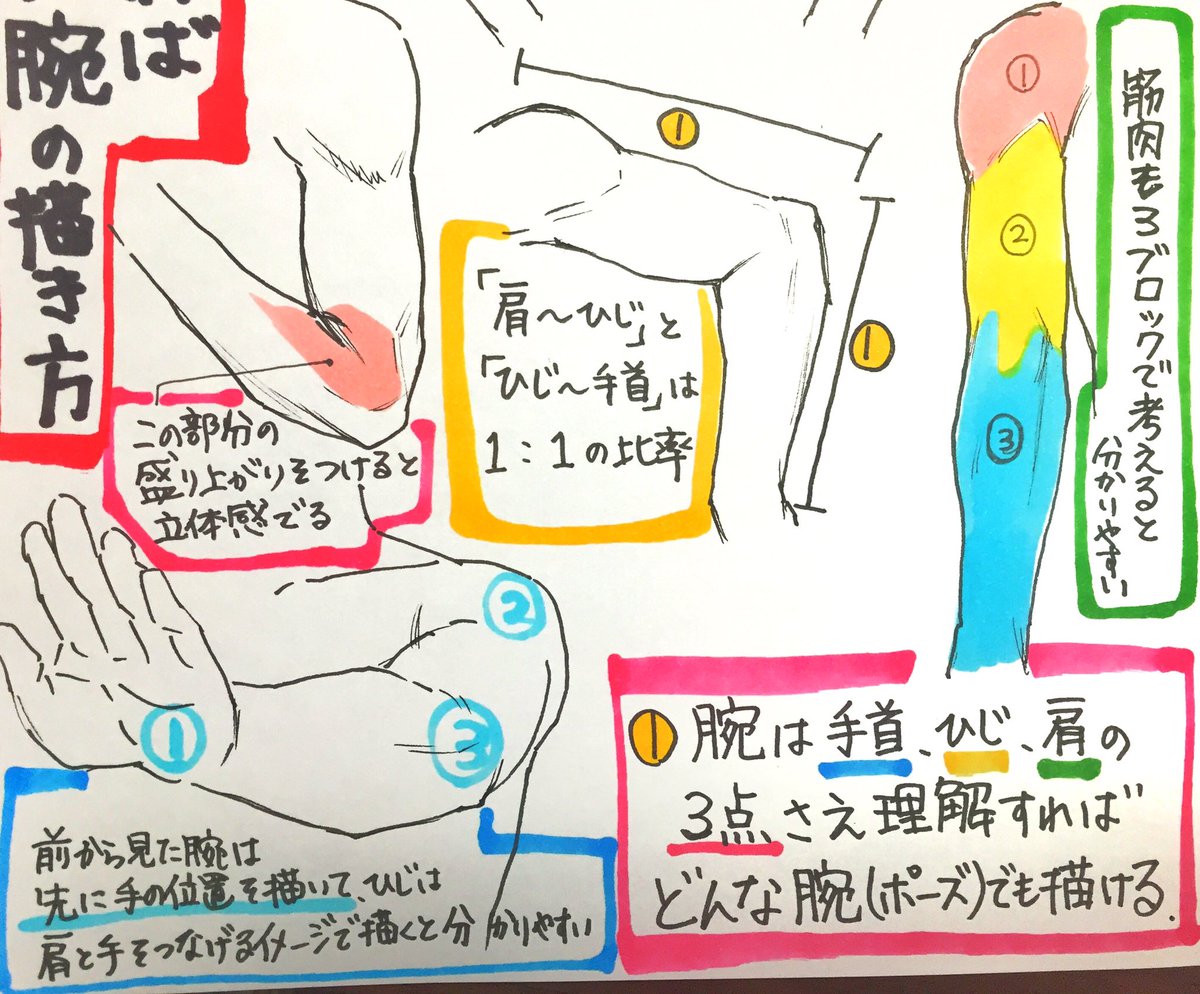 ば
腕の描き方
この部分の
盛り上がりをつけると
立体感でる
①
①
「肩〜ひじ」と
「ひじ〜手首」は
1:1の比率
①
②
③
筋肉も3ブロックで考えると
分かりやすい
①
②
③
前から見た腕は
先に手の位置を描いて、ひじは
肩と手をつなげるイメージで描くと分かりやすい
①腕は手首、ひじ、肩の
3点さえ理解すれば
どんな腕(ポーズ)でも描ける.